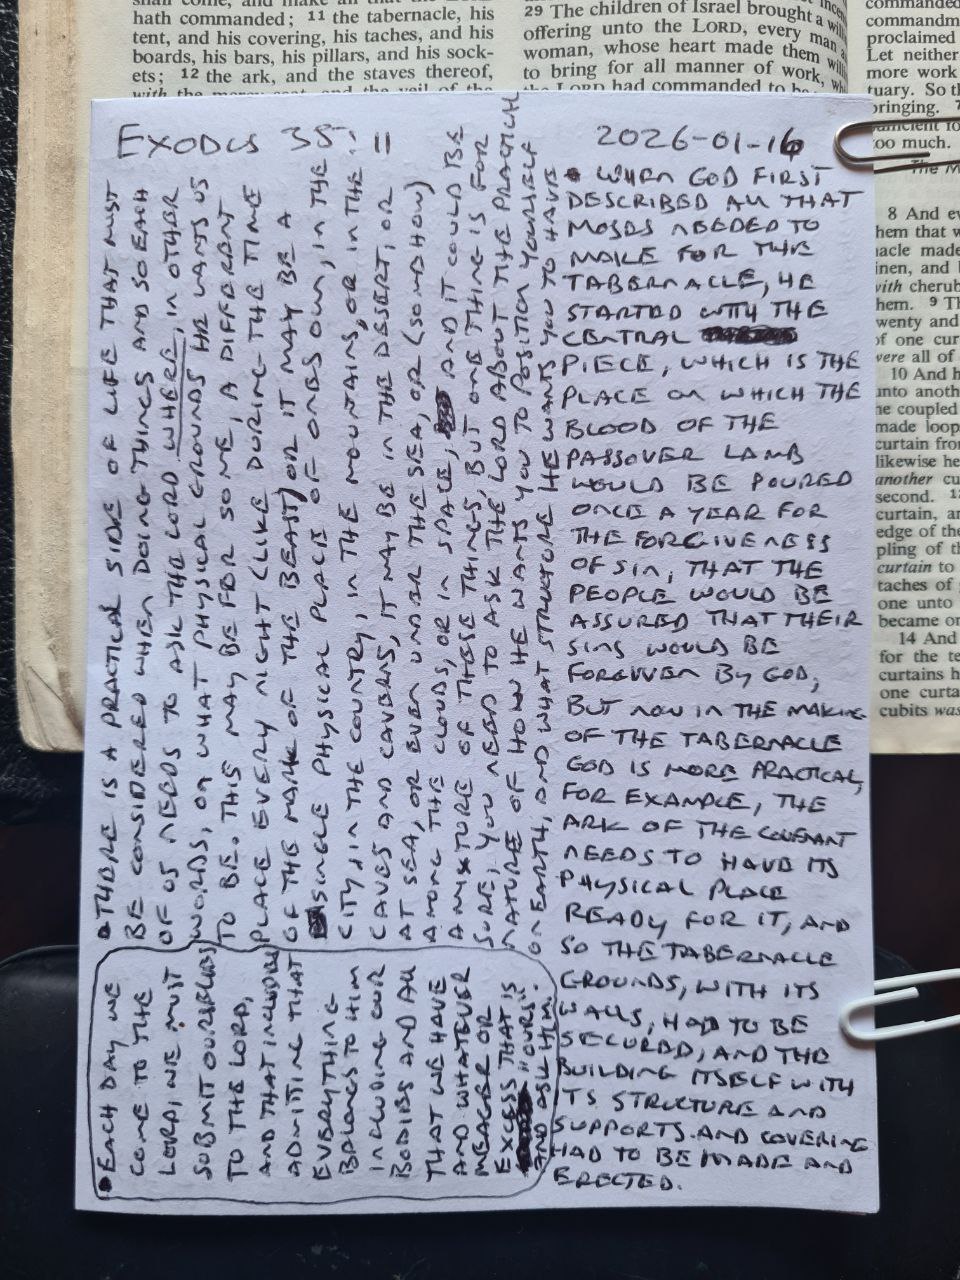 hath commanded; 11 the tabernacle, his
tent, and his covering, his taches, and his
boards, his bars, his pillars, and his sock-
ets; 12 the ark, and the staves thereof,
29 The children of Israel brought a
offering unto the LORD, every man
woman, whose heart made them
to bring for all manner of work,
the LORD had commanded to be
proclaimed
Let neither
more work
tuary. So
bringing.
too much.
8 And
them that
nacle made
with
hem. 9
wenty and
of one
were all of
10 And
unto
he coupled
made
curtain
likewise
another
second.
curtain,
edge of the
curtain to
taches of
one unto
became
14 And
for the
curtains
one
cubits was
EXODUS 35:11
2026-01-16
• WHEN GOD FIRST
DESCRIBED ALL THAT
MOSES NEEDED TO
MAKE FOR THE
TABERNACLE, HE
STARTED WITH THE
CENTRAL
PIECE, WHICH IS THE
PLACE ON WHICH THE
BLOOD OF THE
PASSOVER LAMB
WOULD BE POURED
ONCE A YEAR FOR
THE FORGIVENESS
OF SIN, THAT THE
PEOPLE WOULD BE
ASSURED THAT THEIR
SINS WOULD BE
FORGIVEN BY GOD,
BUT NOW IN THE MAKING
OF THE TABERNACLE
GOD IS MORE PRACTICAL,
FOR EXAMPLE, THE
ARK OF THE COVENANT
NEEDS TO HAVE ITS
PHYSICAL PLACE
READY FOR IT, AND
SO THE TABERNACLE
GROUNDS, WITH ITS
WALLS, HAD TO BE
SECURED, AND THE
BUILDING ITSELF WITH
ITS STRUCTURE AND
SUPPORTS AND COVERING
HAD TO BE MADE AND
ERECTED.
• THERE IS A PRACTICAL SIDE OF LIFE THAT MUST
BE CONSIDERED WHEN DOING THINGS AND SO EACH
OF US NEEDS TO ASK THE LORD WHERE, IN OTHER
WORDS, ON WHAT PHYSICAL GROUNDS HE WANTS US
TO BE. THIS MAY BE FOR SOME, A DIFFERENT
PLACE EVERY NIGHT (LIKE DURING THE TIME
OF THE MARK OF THE BEAST) OR IT MAY BE A
SINGLE PHYSICAL PLACE OF ONES OWN, IN THE
CITY, IN THE COUNTRY, IN THE MOUNTAINS, OR IN THE
CAVES AND CAVERNS, IT MAY BE IN THE DESERT, OR
AT SEA, OR EVEN UNDER THE SEA, OR (SOMEHOW)
AMONG THE CLOUDS, OR IN SPACE, AND IT COULD BE
A MIXTURE OF THESE THINGS, BUT ONE THING IS FOR
SURE, YOU NEED TO ASK THE LORD ABOUT THE PRACTICAL
NATURE OF HOW HE WANTS YOU TO POSITION YOURSELF
ON EARTH, AND WHAT STRUCTURE HE WANTS YOU TO HAVE
• EACH DAY WE
COME TO THE
LORD, WE MUST
SUBMIT OURSELVES
TO THE LORD,
AND THAT INCLUDES
ADMITTING THAT
EVERYTHING
BELONGS TO HIM
INCLUDING OUR
BODIES AND ALL
THAT WE HAVE
AND WHATEVER
MEAGER OR
EXCESS THAT IS
"OURS"
AND ASK HIM.